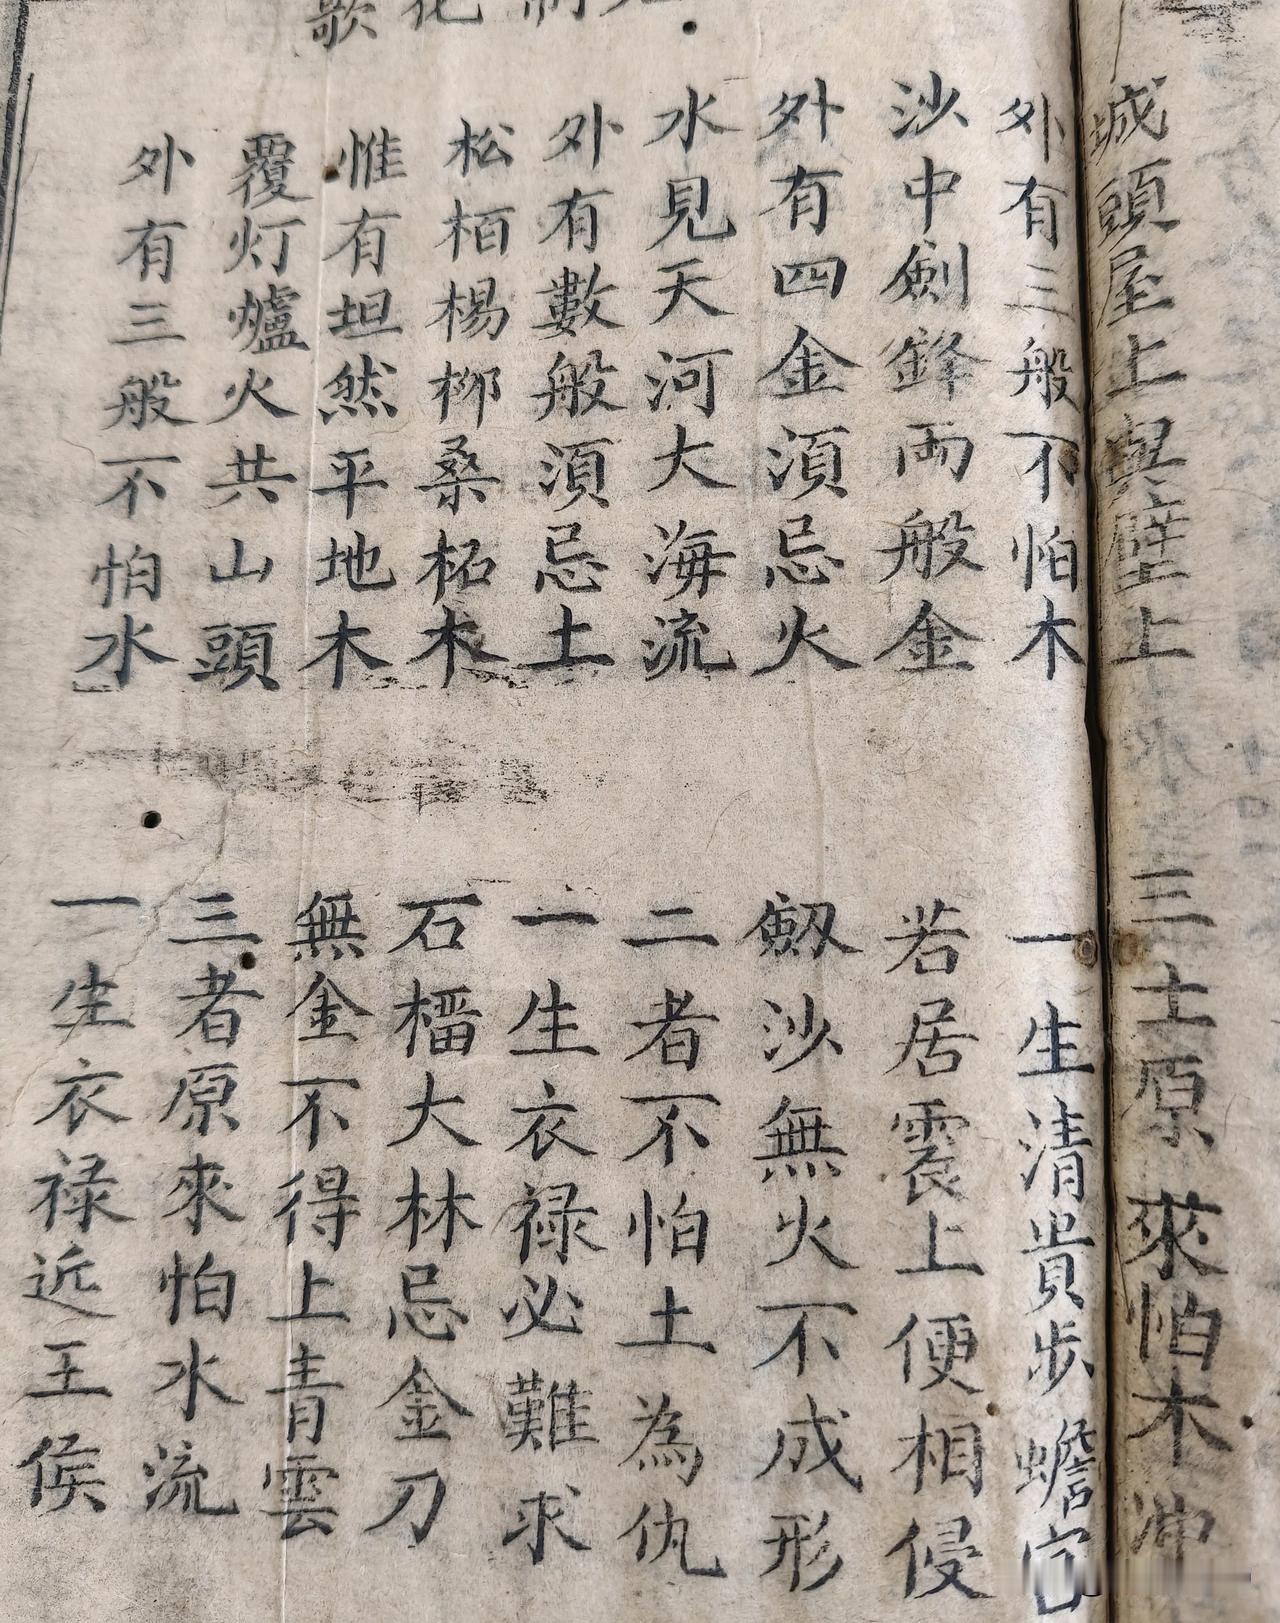 歌
城頭屋上與壁上
三土原來怕木冲
外有三般不怕木
一生清貴步蟾宮
沙中劍鋒両般金
若居震上便相侵
外有四金須忌火
劔沙無火不成形
水見天河大海流
二者不怕土為仇
外有數般須忌土
一生衣禄必難求
松栢楊柳桑柘木
石榴大林忌金刀
惟有坦然平地木
無金不得上青雲
覆灯爐火共山頭
三者原來怕水流
外有三般不怕水
一生衣禄近王侯